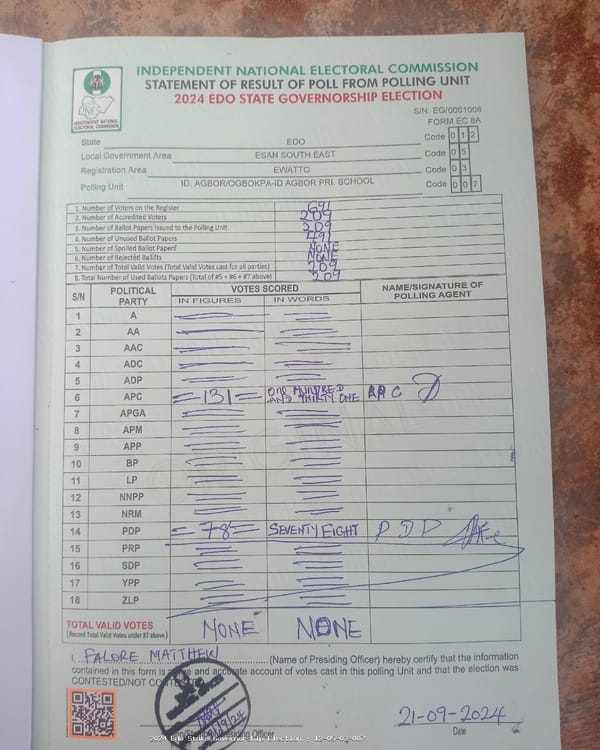 INDEPENDENT NATIONAL ELECTORAL COMMISSION
STATEMENT OF RESULT OF POLL FROM POLLING UNIT
2024 EDO STATE GOVERNORSHIP ELECTION
INDEPENDENT NATIONAL
ELECTORAL COMMISSION
S/N: EG/0001008
FORM EC 8A
State EDO Code 0 1 2
Local Government Area ESAN SOUTH EAST Code 0 5
Registration Area EWATTO Code 0 3
Polling Unit ID. AGBOR/OGBOKPA-ID AGBOR PRI. SCHOOL Code 0 0 7
1. Number of Voters on the Register 691
2. Number of Accredited Voters 209
3. Number of Ballot Papers Issued to the Polling Unit 209
4. Number of Unused Ballot Papers 491
5. Number of Spoiled Ballot Papers NONE
6. Number of Rejected Ballots NONE
7. Number of Total Valid Votes (Total Valid Votes cast for all parties) 209
8. Total Number of Used Ballots Papers (Total of #5 + #6 + #7 above) 209
S/N POLITICAL PARTY VOTES SCORED NAME/SIGNATURE OF POLLING AGENT
IN FIGURES IN WORDS
1 A
2 AA
3 AAC
4 ADC
5 ADP
6 APC =131= ONE HUNDRED AND THIRTY ONE APC
7 APGA
8 APM
9 APP
10 BP
11 LP
12 NNPP
13 NRM
14 PDP =78= SEVENTY EIGHT PDP
15 PRP
16 SDP
17 YPP
18 ZLP
TOTAL VALID VOTES NONE NONE
(Record Total Valid Votes under #7 above)
I, FALORE MATTHEW (Name of Presiding Officer) hereby certify that the information
contained in this form is and accurate account of votes cast in this polling Unit and that the election was
CONTESTED/NOT
21-09-2024
Presiding Officer Date
2024 Edo State Governorship Election - 12-05-03-007